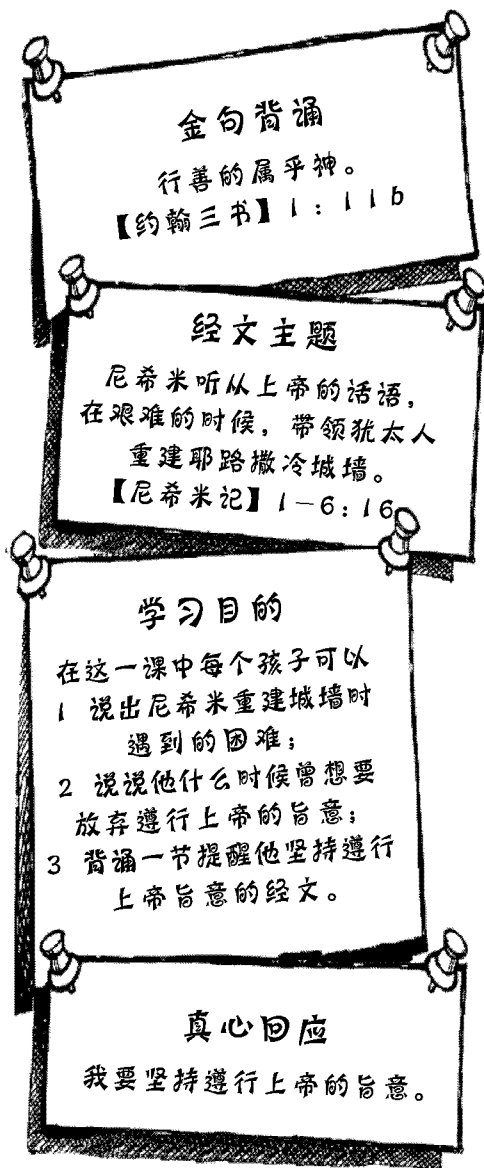 金句背诵
行善的属乎神。
【约翰三书】1：11b
经文主题
尼希米听从上帝的话语，
在艰难的时候，带领犹太人
重建耶路撒冷城墙。
【尼希米记】1－6：16
学习目的
在这一课中每个孩子可以
1 说出尼希米重建城墙时
遇到的困难；
2 说说他什么时候曾想要
放弃遵行上帝的旨意；
3 背诵一节提醒他坚持遵行
上帝旨意的经文。
真心回应
我要坚持遵行上帝的旨意。